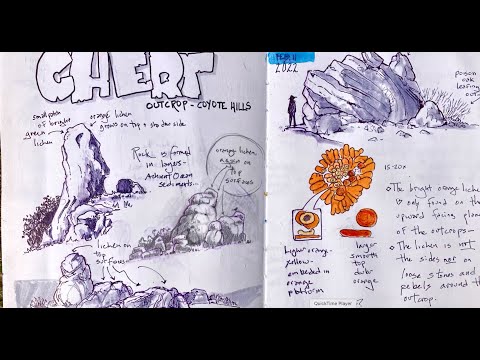 CHERT
OUTCROP - COYOTE HILLS
small patch
of bright
green
lichen
orange lichen
grows on top + shadow side
Rock is formed
in layers-
Ancient Ocean
sediments...
orange lichen
again on
top
surfaces
lichen on
top
surfaces
2022
poison
oak
leafing
out
15-20x
higher orange-
yellow-
embedded in
orange
platform
larger
smooth
top
dark
orange
The bright orange lichen
is only found on the
upward facing plane
of the outcrops-
The lichen is not
the sides nor on
loose stones and
pebels around the
outcrop.
QuickTime Player